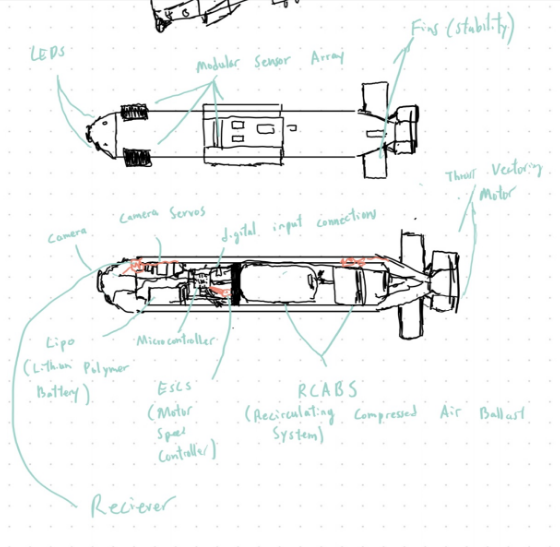 Fins (stability)
LEDS
Modular Sensor Array
Thrust Vectoring
Motor
Camera Servos
digital input connections
Camera
Lipo
(Lithium Polymer
Battery)
Microcontroller
ESCs
(Motor
Speed
Controller)
RCABS
(Recirculating Compressed Air Ballast
System)
Reciever